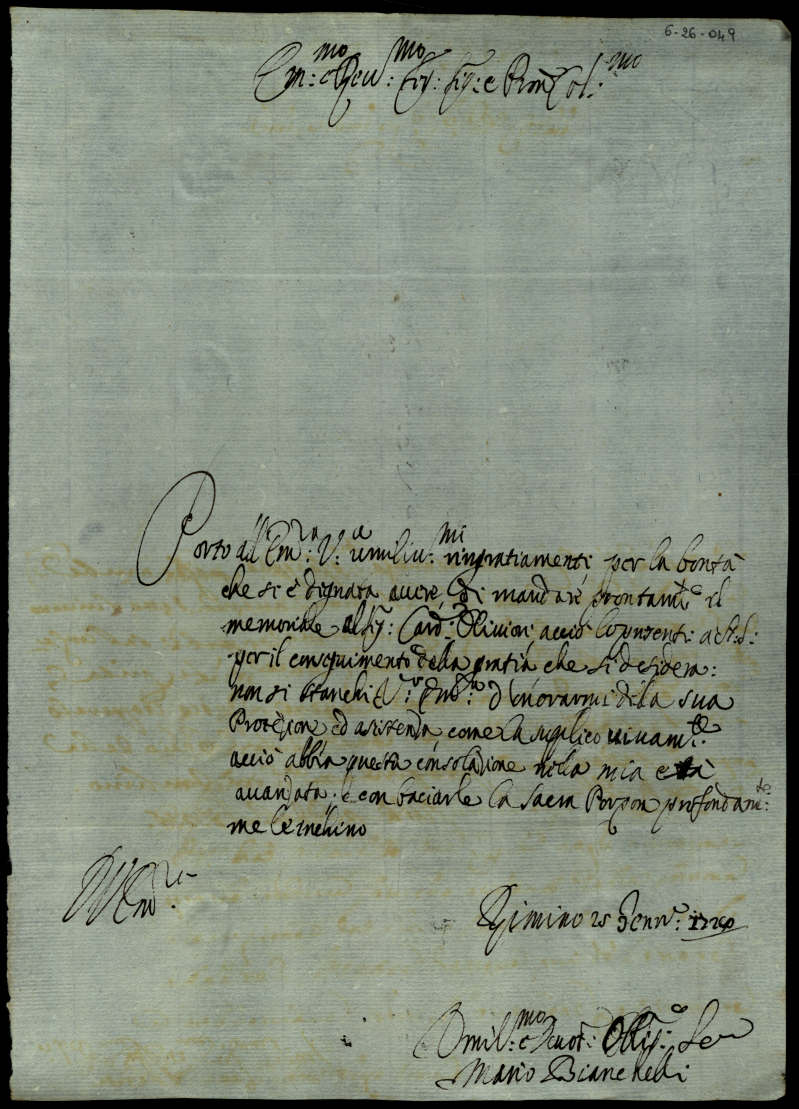 6-26-049
Em:mo e Reu:mo Sig: Sig: e Pron Col:mo
Porto all' Em:za V:a umiliss:mi ringratiamenti per la bontà
che si è dignata avere di mandare prontam:te il
memoriale al Sig: Card: Oliuieri acciò lo presenti a S: S:
per il conseguimento della gratia che si desidera:
non si stanchi V:a Em:za d' onorarmi della sua
Protezione ed asistenza come la suplico uiuam:te
acciò abbia questa consolazione nella mia età
auanzata. e con baciarle la sacra Porpora profondam:te
me le inchino
V Em:za
Rimino 25 Genn:o
Umil:mo e Deuot: Obbig:o Ser
Mario Bianchelli